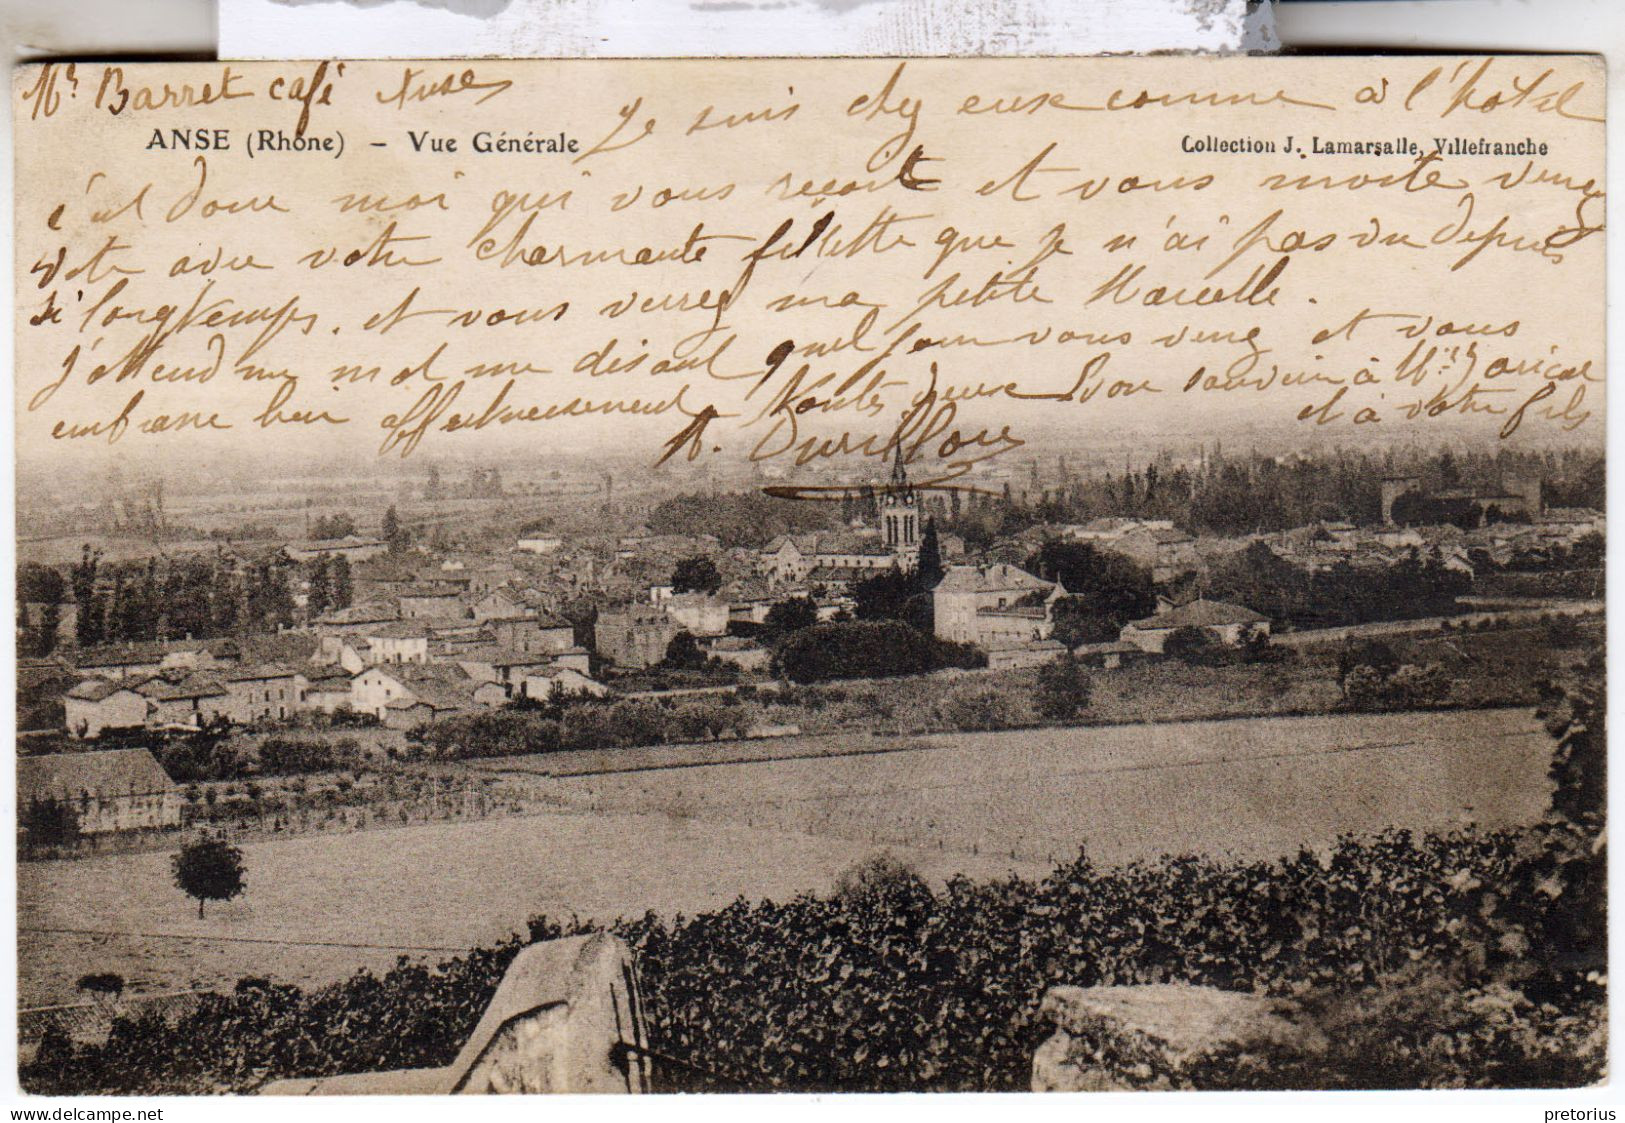 Mr Barret café Anse
Je suis chez eux comme à l'hôtel
ANSE (Rhône) – Vue Générale
Collection J. Lamarsalle, Villefranche
c'est donc moi qui vous reçoit et vous invite venez
vite avec votre charmante fillette que je n'ai pas vu depuis
si longtemps. et vous verrez ma petite Marcelle.
J'attend un mot me disant quel jour vous venez et vous
embrasse bien affectueusement
toutes deux bon souvenir à Mr
et à votre fils
pretorius